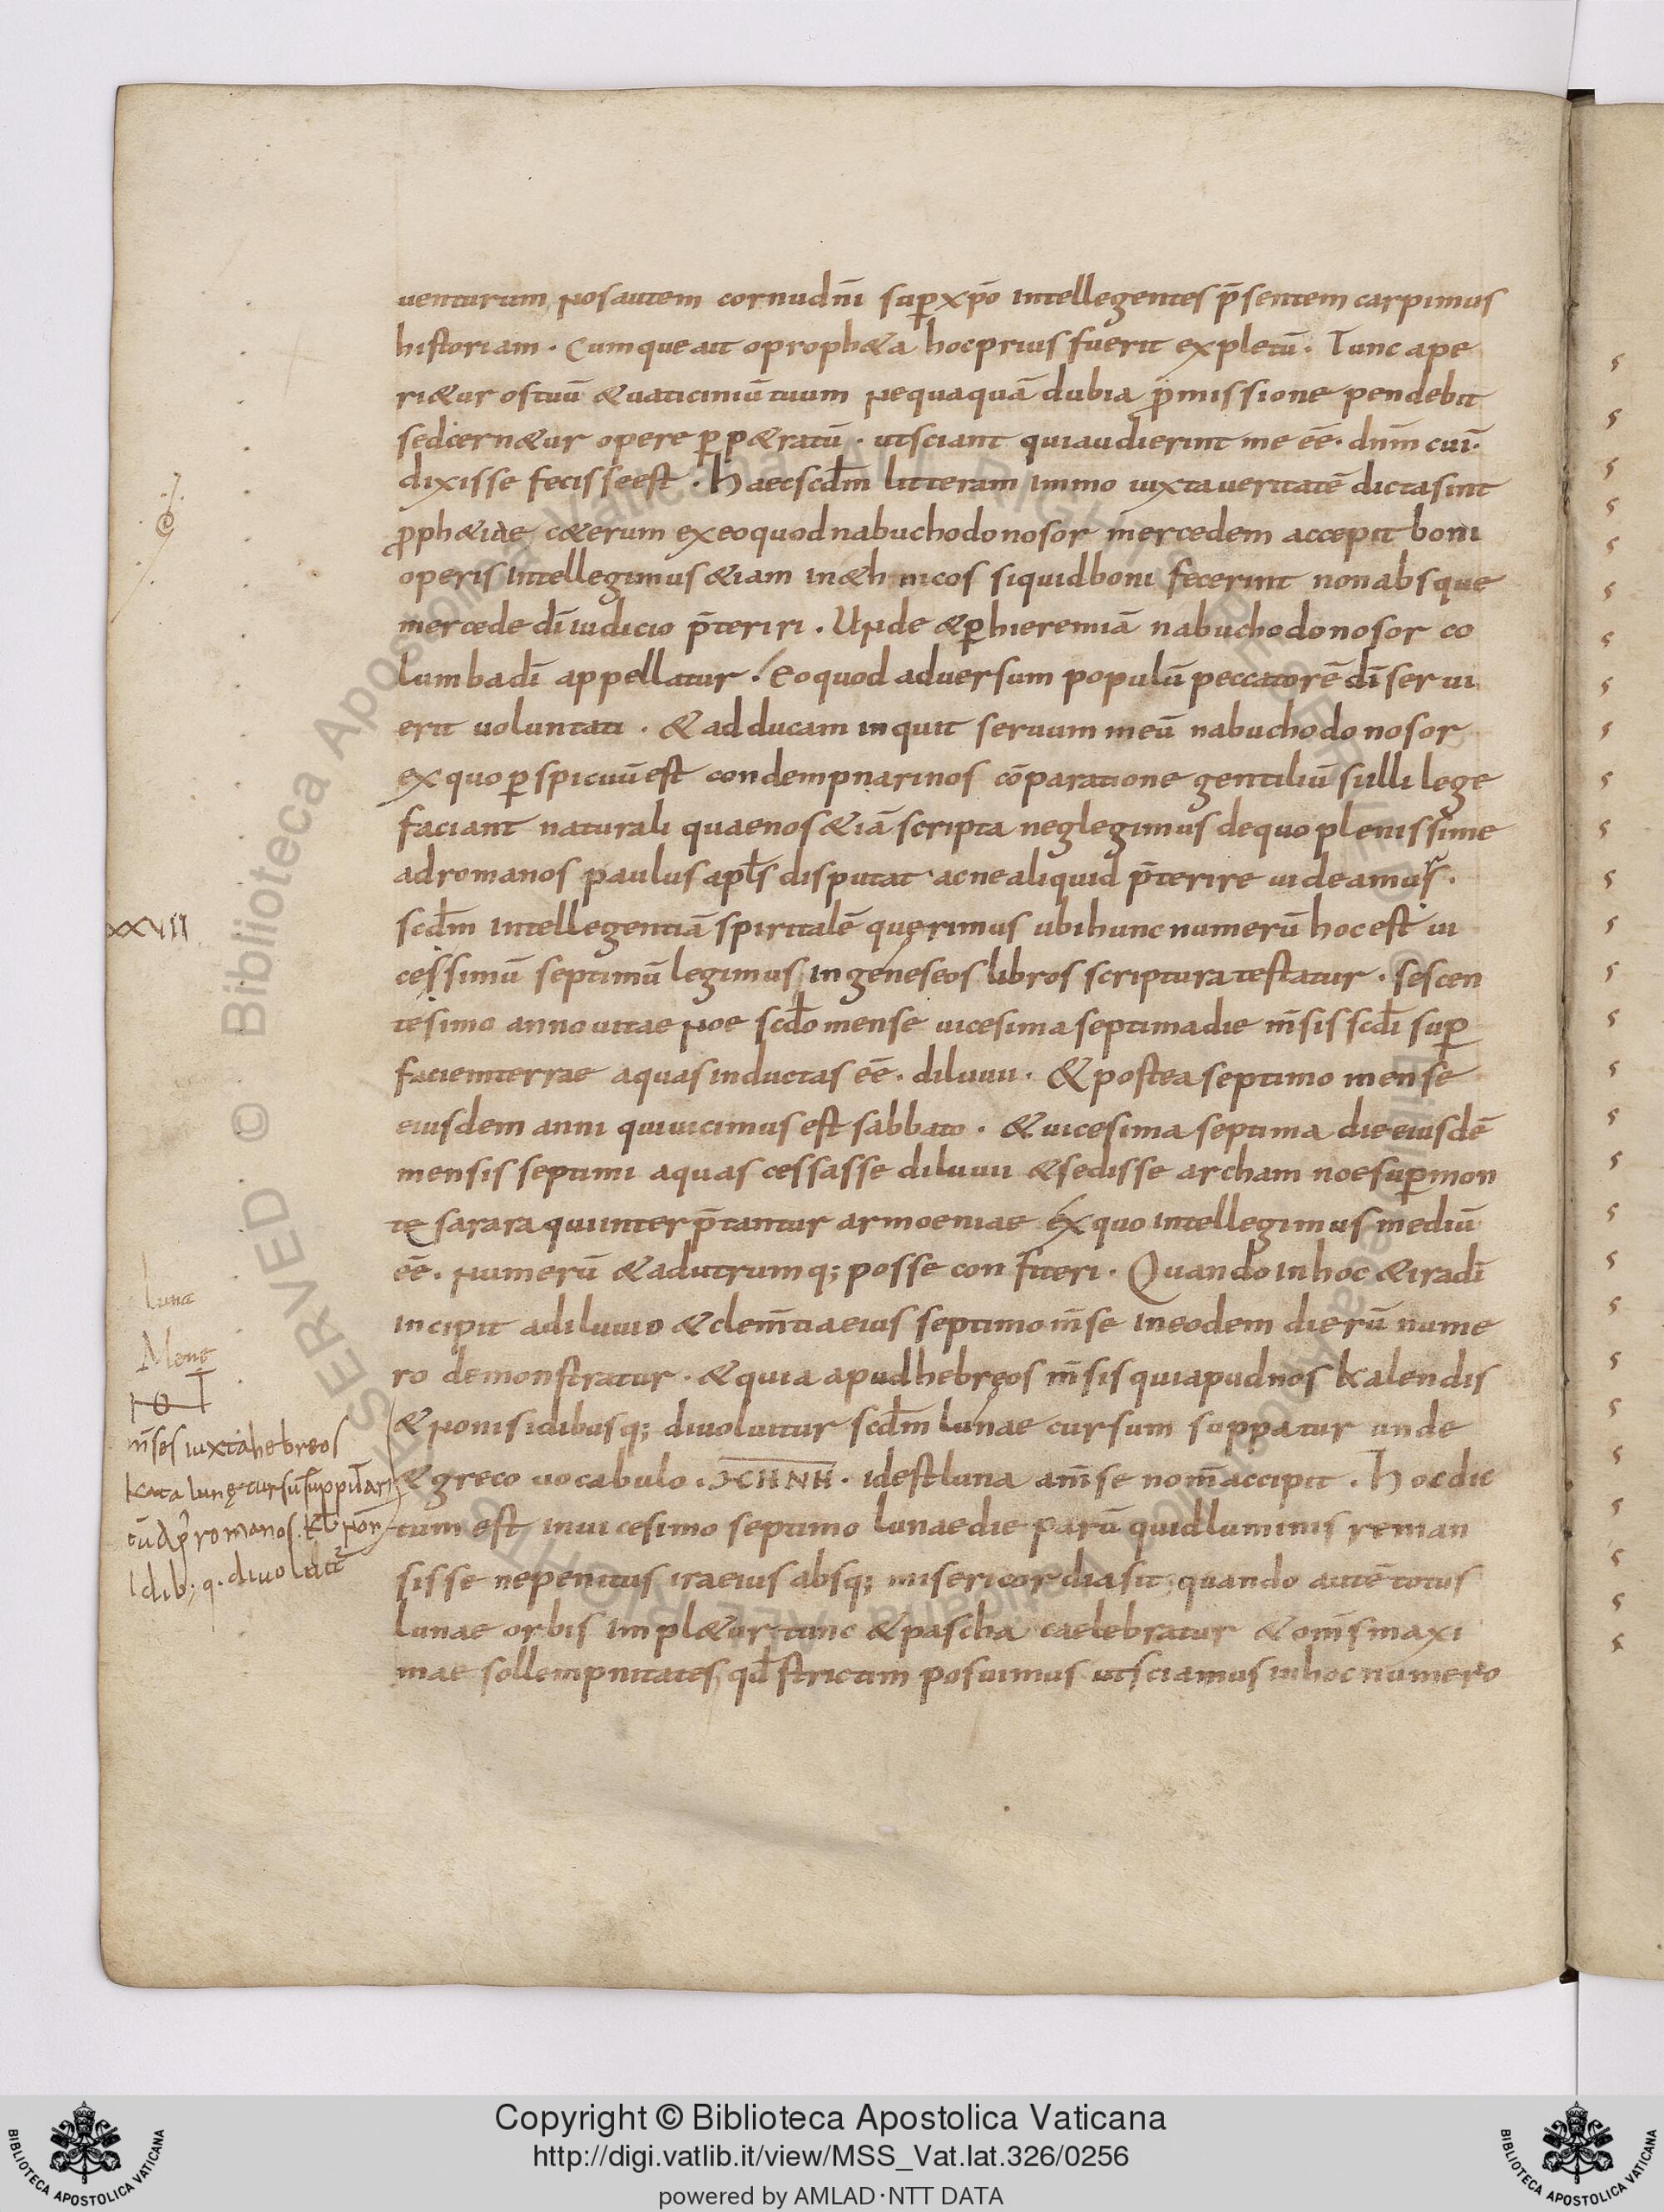 uenturum, nosautem cornudn̄i sup̱xp̄o intellegentes p̄sentem carpimus
historiam · Cumqueait oproph&a hocprius fuerit expletū · Tunc ape
ri&ur ostuū &uaticiniū tuum nequaquā dubia p̄missione pendebit
sedcern&ur opere p̱p&ratū · utsciant quiaudierint me ēē · dnm̄ cui ·
dixisse fecisseest · Haecscd̄m litteram immo iuxtaueritatē dictasint
ꝓph&iae c&erum exeoquodnabuchodonosor mercedem accepit boni
operis intellegimus &iam in&hnicos siquidboni fecerint nonabsque
mercede dī iudicio p̄teriri · Unde &p̱hieremiā nabuchodonosor co
lumbadī appellatur · Eoquod aduersum populū peccatorē dī serui
erit uoluntati · &adducam inquit seruum meū nabuchodonosor
exquop̱spicuūest condempnarinos cōparatione gentiliū siilli lege
faciant naturali quaenos&iā scripta neglegimus dequo plenissime
adromanos paulus apl̄s disputat · acnealiquid p̄terire uideamur ·
scd̄m intellegentiā spiritalē querimus ubihunc numerū hocest ui
cessimū septimū legimus ingeneseos libros scriptura testatur · sescen
tesimo anno uitae noe scd̄o mense uicesima septimadie m̄sis scd̄i sup̱
faciemterrae aquas inductas ēē · diluuii · &postea septimo mense
eiusdem anni quiuicimus est sabbato · &uicesima septima die eiusdē
mensis septimi aquas cessasse diluuii &sedisse archam noesup̱mon
te sarara quiinterp̄tantur armoeniae exquo intellegimus mediū
ēē · numerū &adutrumq; posse conferri · Quando inhoc &iradī
incipit adiluuio &clem̄tiaeius septimom̄se ineodem dierū nume
ro demonstratur · &quia apudhebreos m̄sis quiapudnos kalendis
&nonis idibusq; diuoluitur scd̄m lunae cursum suppatur unde
&greco uocabulo · ΧΗΝΗ · idestluna am̄se nom̄accipit · Hocdic
tum est inuicesimo septimo lunaedie parū quidluminis reman
sisse nepenitus iraeius absq; misericordiasit, quando autē totus
lunae orbis impl&ur tunc &pascha caelebratur &om̄smaxi
mae sollempnitates, qd̄ strictim posuimus utsciamus inhocnumero
XXVII
luna
Mene
NOT
m̄ses iuxtahebreos
kata lunę cursū supputari
romanos · kl̄ nōn
Idib; q · diuoluit
Copyright © Biblioteca Apostolica Vaticana
http://digi.vatlib.it/view/MSS_Vat.lat.326/0256
powered by AMLAD·NTT DATA
BIBLIOTECA APOSTOLICA VATICANA
BIBLIOTECA APOSTOLICA VATICANA